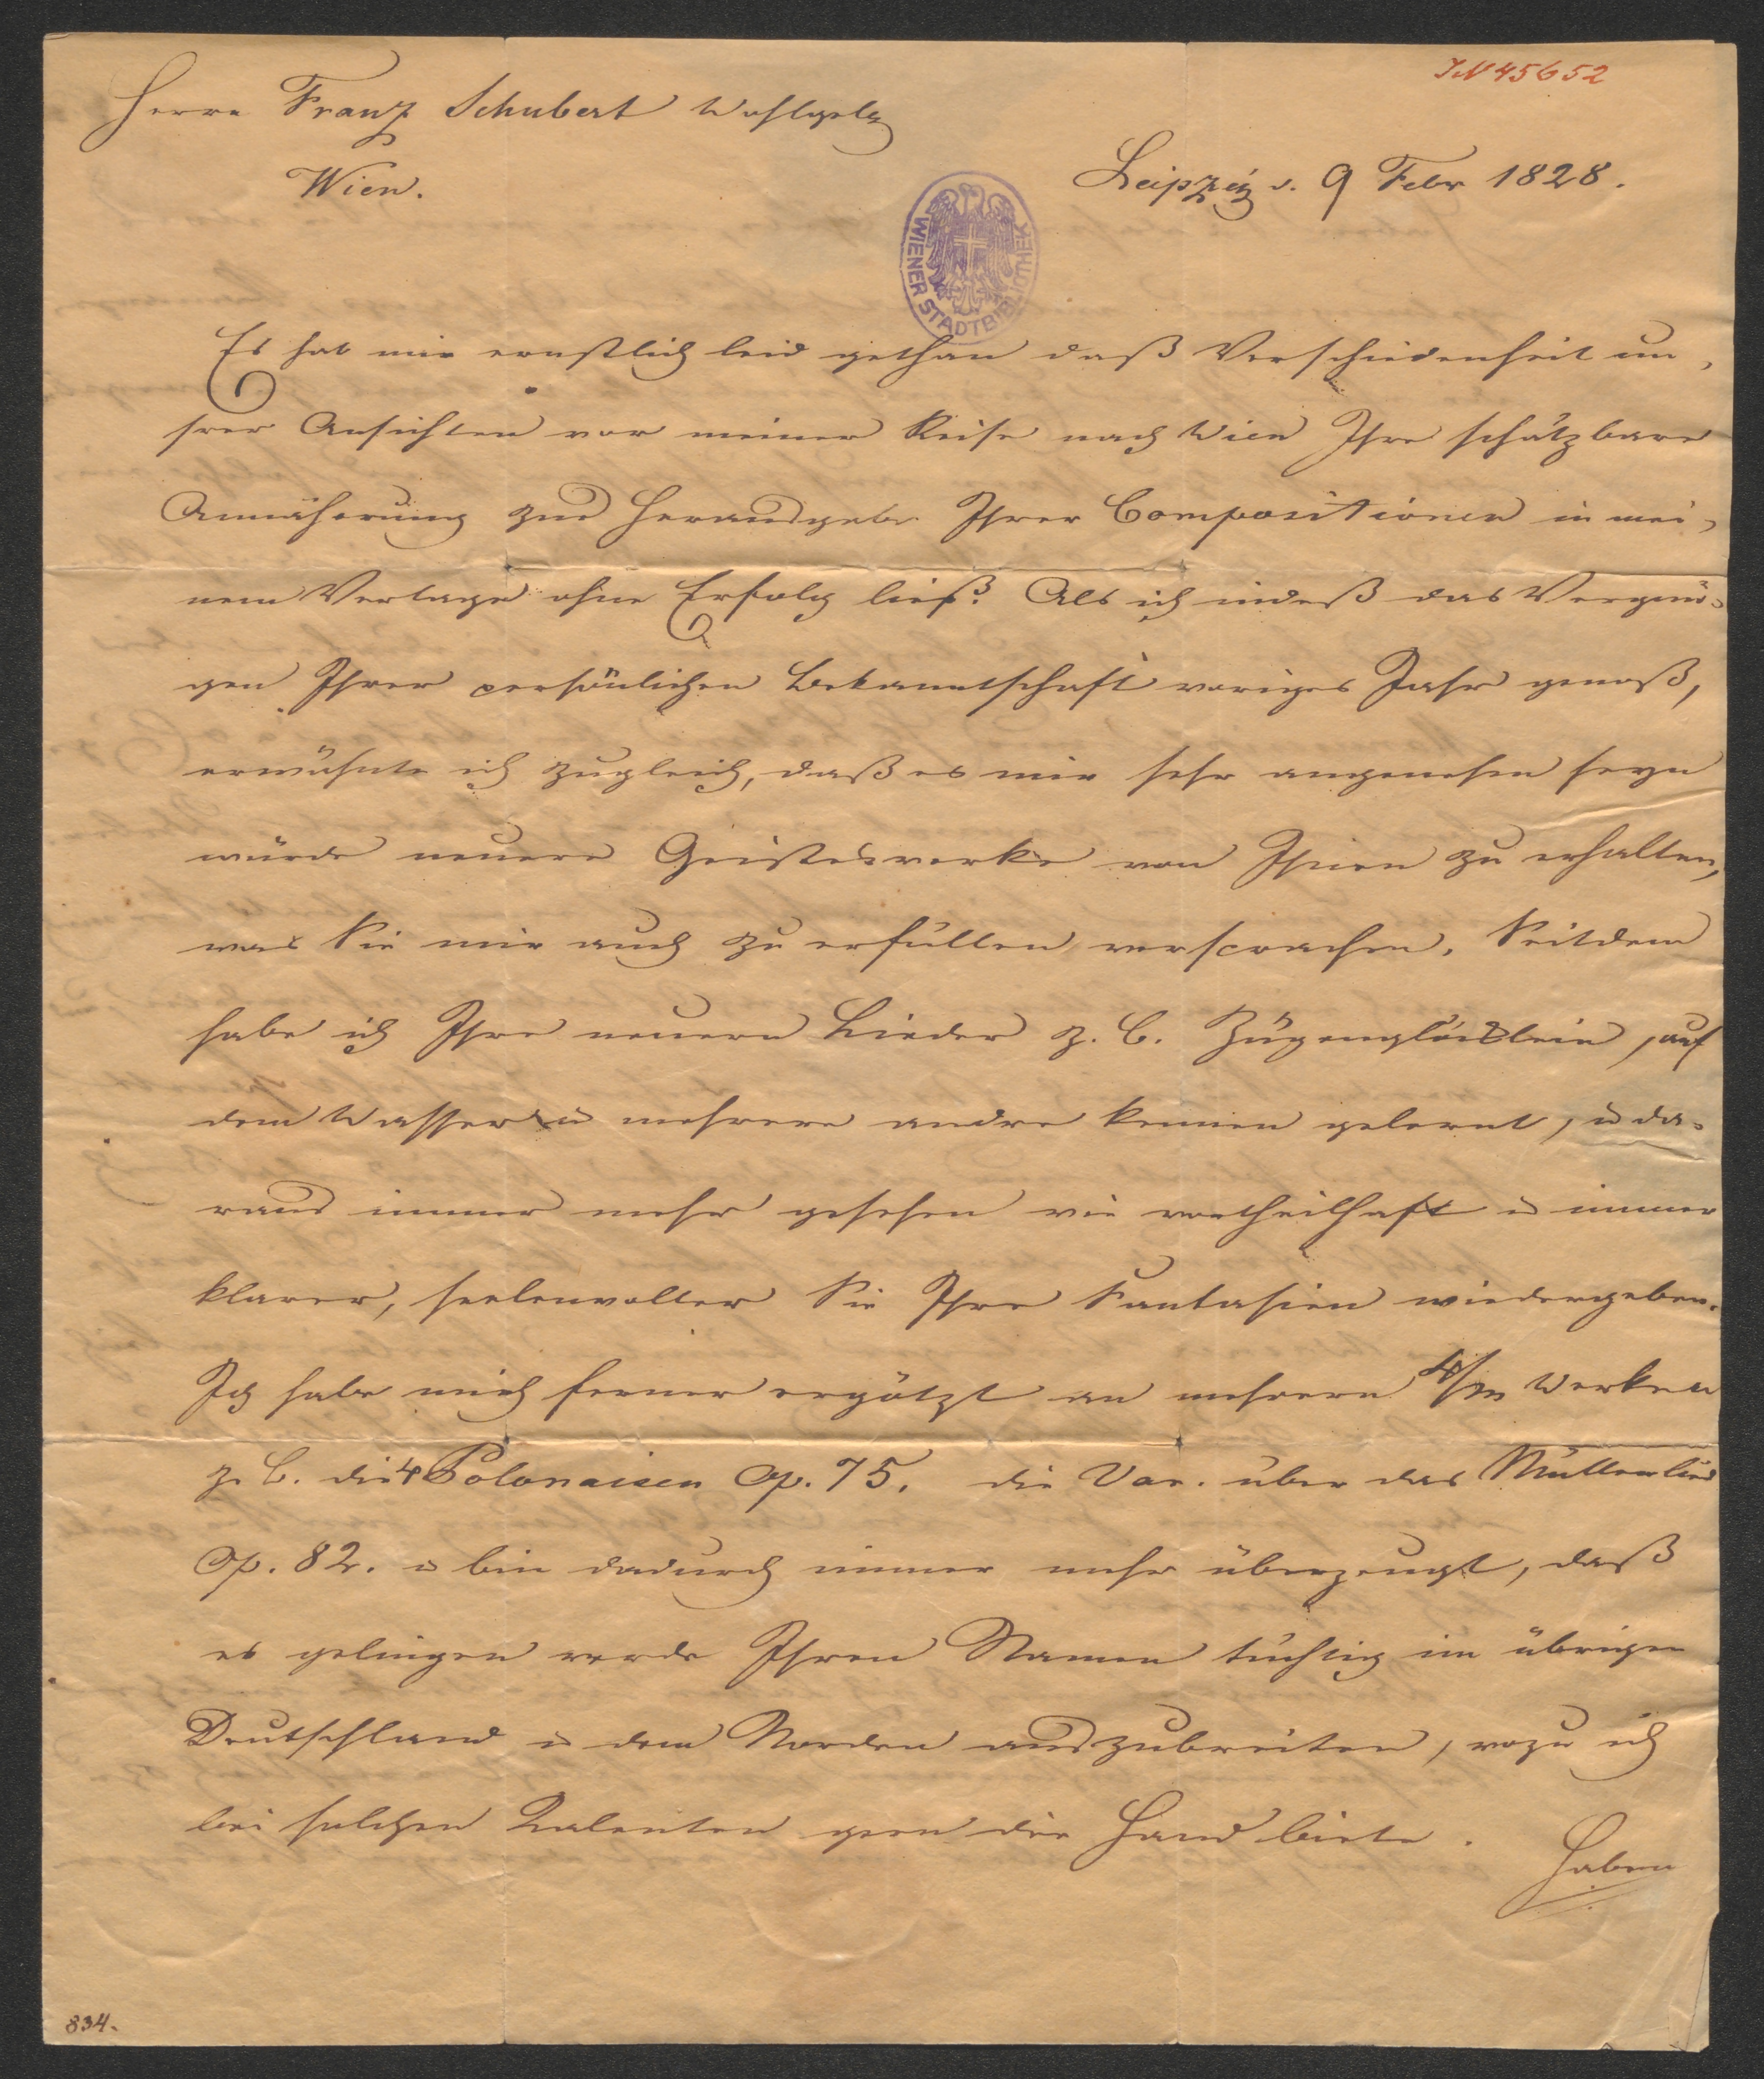 JN 45652
Herrn Franz Schubert Wohlgeb
Wien.
Leipzig d. 9 Febr 1828.
WIENER STADTBIBLIOTHEK
Es hat mir ernstlich leid gethan daß Verschiedenheit un-
srer Ansichten vor meiner Reise nach Wien Ihre schätzbare
Annäherung zur Herausgabe Ihrer Compositionen in mei-
nem Verlage ohne Erfolg ließ. Als ich indeß das Vergnü-
gen Ihrer persönlichen Bekanntschaft voriges Jahr genoß,
erwähnte ich zugleich, daß es mir sehr angenehm seyn
würde neuere Geisteswerke von Ihnen zu erhalten,
was Sie mir auch zu erfüllen versprachen. Seitdem
habe ich Ihre neuern Lieder z. B. Zügenglöcklein, auf
dem Wasser u mehrere andre kennen gelernt, u da-
raus immer mehr gesehen wie vortheilhaft u immer
klarer, seelenvoller Sie Ihre Fantasien wiedergeben.
Ich habe mich ferner ergötzt an mehrern 4/m Werken
z. B. die 4 Polonaisen Op. 75. die Var. über das Müllerlied
Op. 82. u bin dadurch immer mehr überzeugt, daß
es gelingen werde Ihren Namen tüchtig im übrigen
Deutschland u dem Norden auszubreiten, wozu ich
bei solchen Talenten gern die Hand biete.
Haben
834.